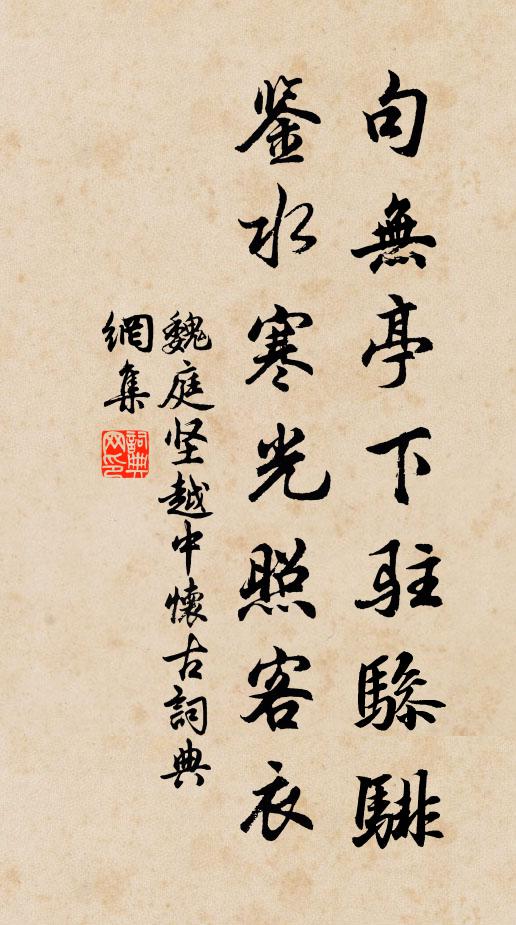 句無亭下駐驂騑
鉴水寒光照客衣
魏庭坚越中懷古詞典
網集
詞典网印